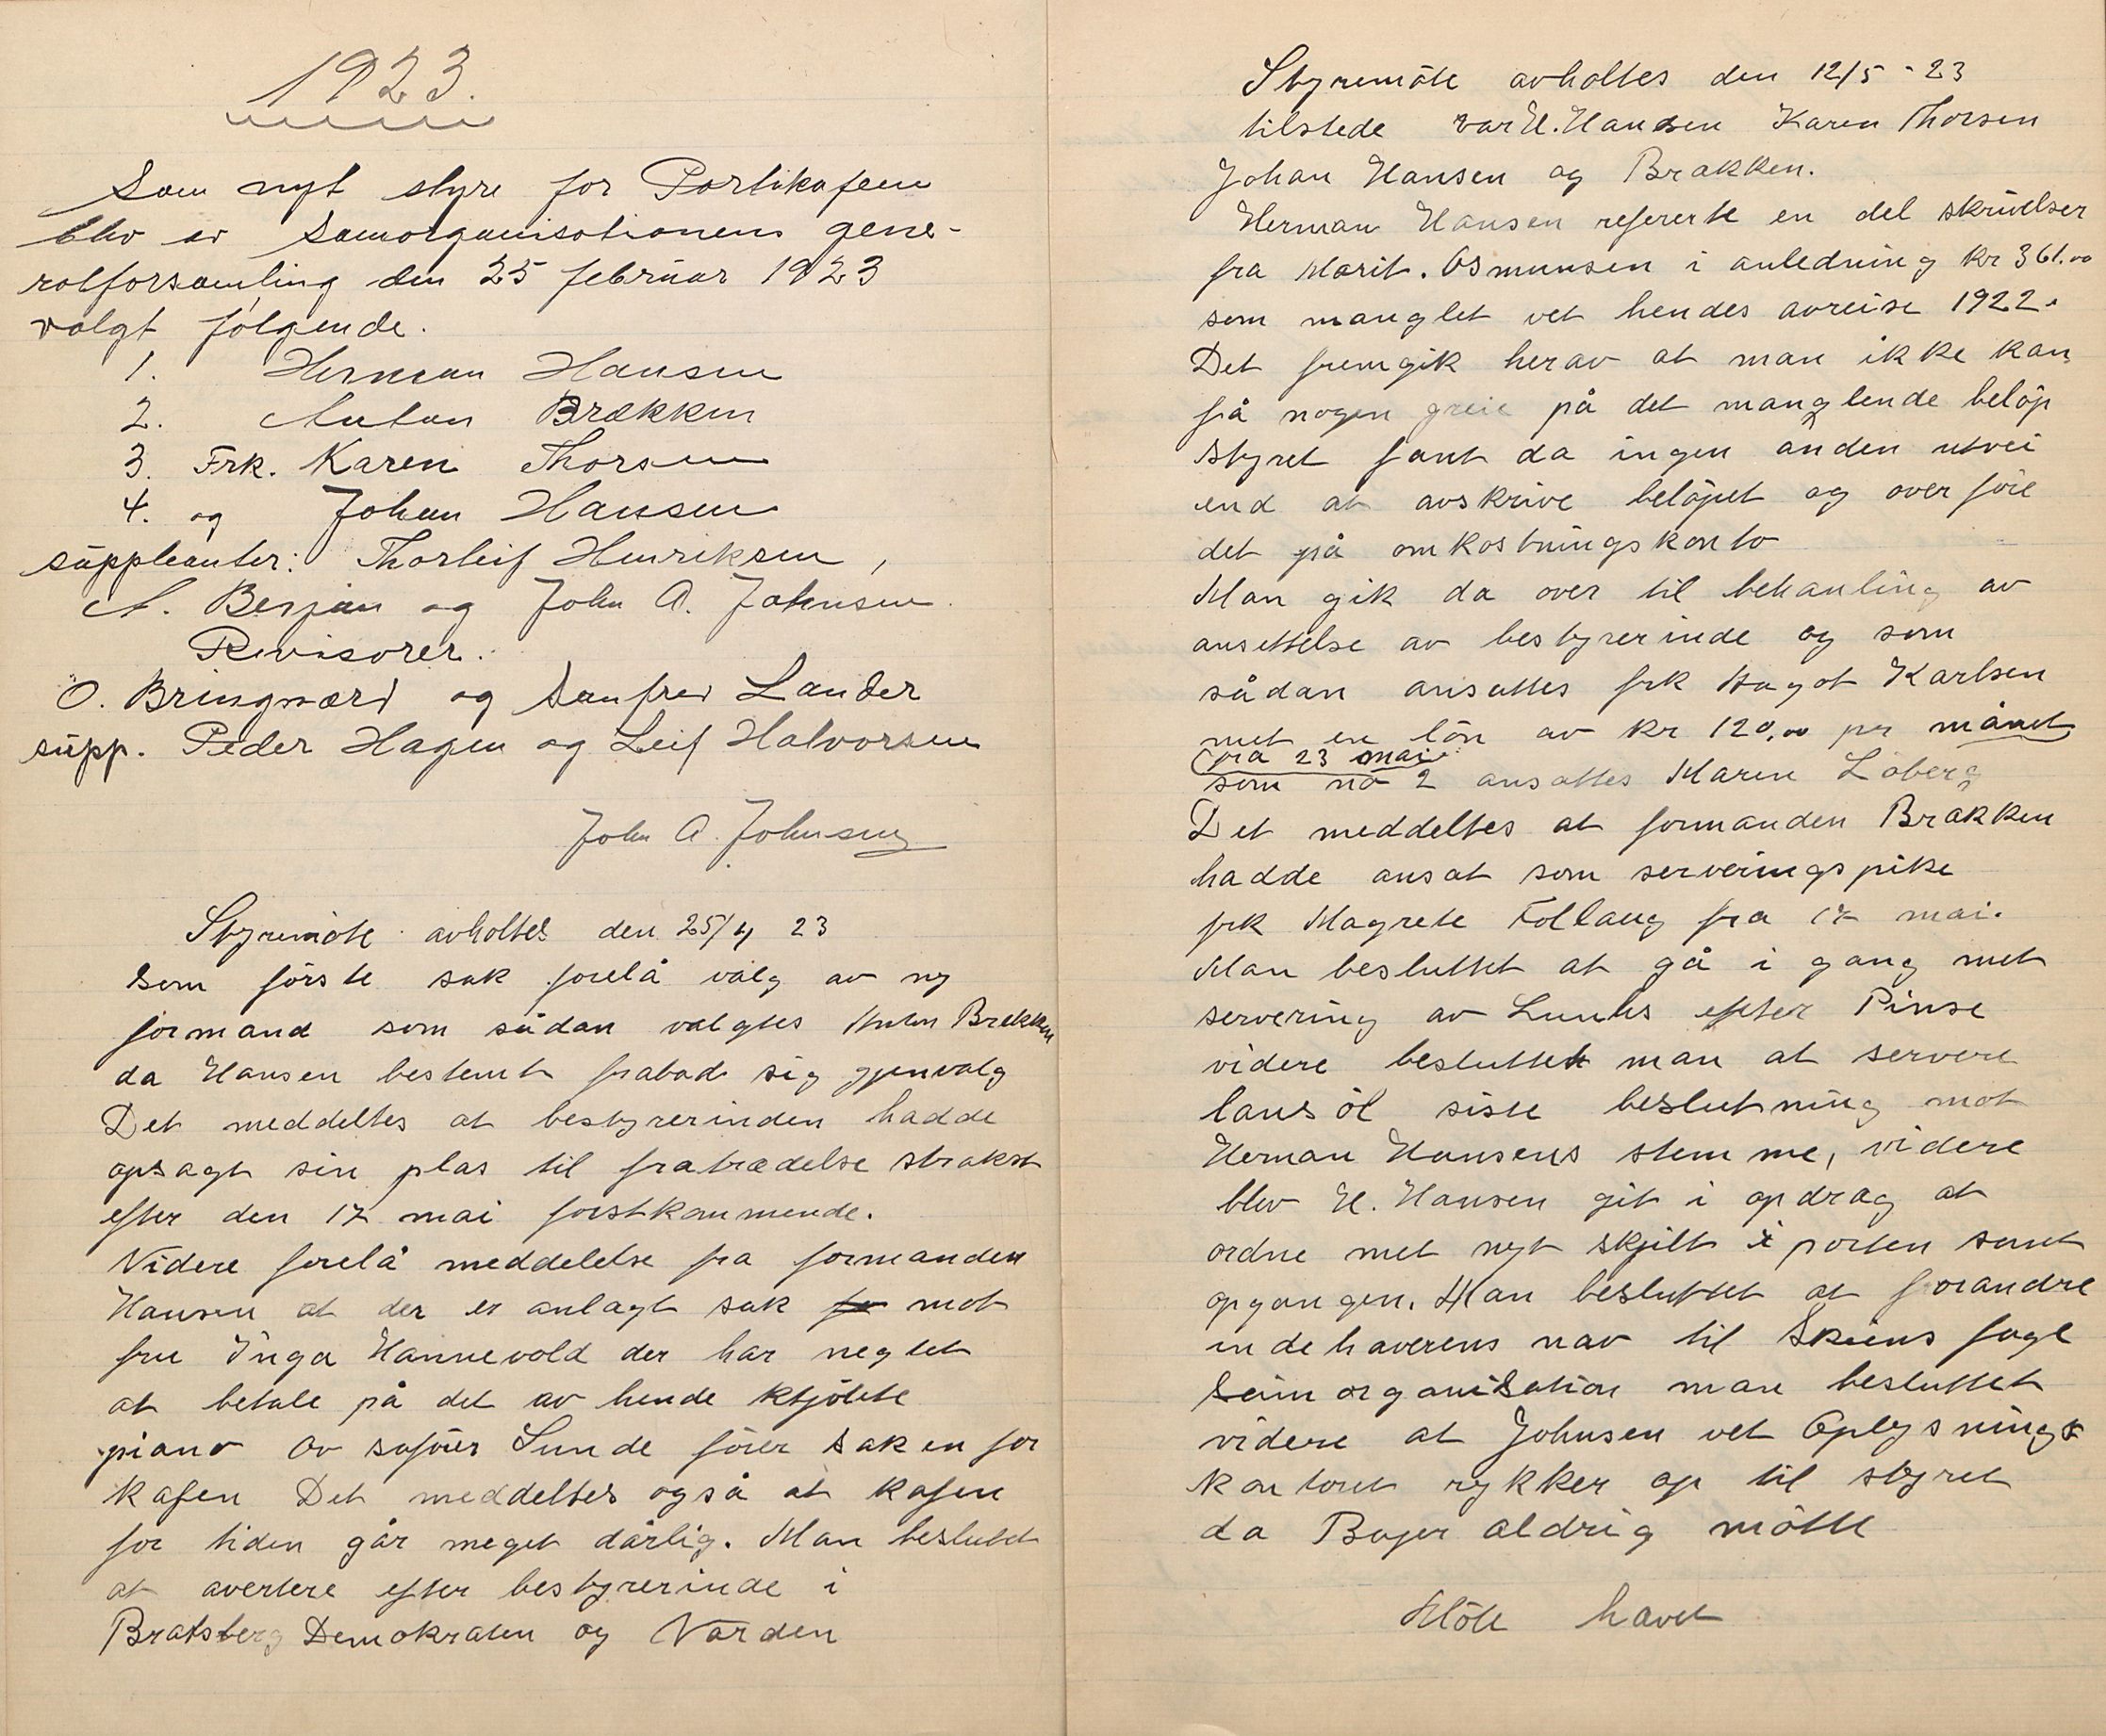 1923.
Som nyt styre for Portikafeen
blev av Samorganisationens gene-
ralforsamling den 25 februar 1923
valgt følgende.
1. Herman Hansen
2. Anton Brækken
3. Frk. Karen Thorsen
4. og Johan Hansen
suppleanter: Thorleif Henriksen,
A. Berjan og John A. Johnsen.
Revisorer:
O. Bringsværd og Sanfred Lander
supp. Peder Hagen og Leif Halvorsen
John A. Johnsen
Styremöte avholtes den 25/4 23
Som förste sak forelå valg av ny
formand som sådan valgtes Anton Brekken
da Hansen bestemt frabad sig gjenvalg
Det meddeltes at bestyrerinden hadde
opsagt sin plas til fratrædelse strakst
efter den 17 mai förstkommende.
Videre forelå meddelelse fra formanden
Hansen at der er anlagt sak mot
fru Inga Hannevold der har neglet
at betale på det av hende ktjöbte
piano Ov saförer Sunde förer saken for
kafen Det meddeltes også at kafen
for tiden går meget dårlig. Man beslutet
at avertere efter bestyrerinde i
Bratsberg Demokraten og Varden
Styremöte avholtes den 12/5 - 23
tilstede var H. Hansen Karen Thorsen
Johan Hansen og Brakken.
Herman Hansen refererte en del skrivelser
fra Marit. Osmunsen i anledning kr 361.00
som manglet vet hendes avreise 1922.
Det fremgik herav at man ikke kan
få nogen greie på det manglende belöp
Styret fant da ingen anden utvei
end at avskrive belöpet og over före
det på omkostningskonto
Man gik da over til behanling av
ansettelse av bestyrerinde og som
sådan ansattes frk Magot Karlsen
met en lön av kr 120,00 pr månet
fra 23 mai
som no 2 ansattes Maren Löberg
Det meddeltes at formanden Brakken
hadde ansat som serveringspike
frk Magrete Follaug fra 17 mai.
Man besluttet at gå i gang met
servering av Lunhs efter Pinse
videre besluttet man at servere
lansöl siste beslutning mot
Herman Hansens stemme, videre
blev H. Hansen git i opdrag at
ordne met nyt skjilt i porten samt
opgangen. Man besluttet at forandre
indehaverens nav til Skiens fagl
Samorganisation man besluttet
videre at Johnsen vet Oplysnings
kontoret rykker op til styret
da Bujer aldrig mötte
Möte havet